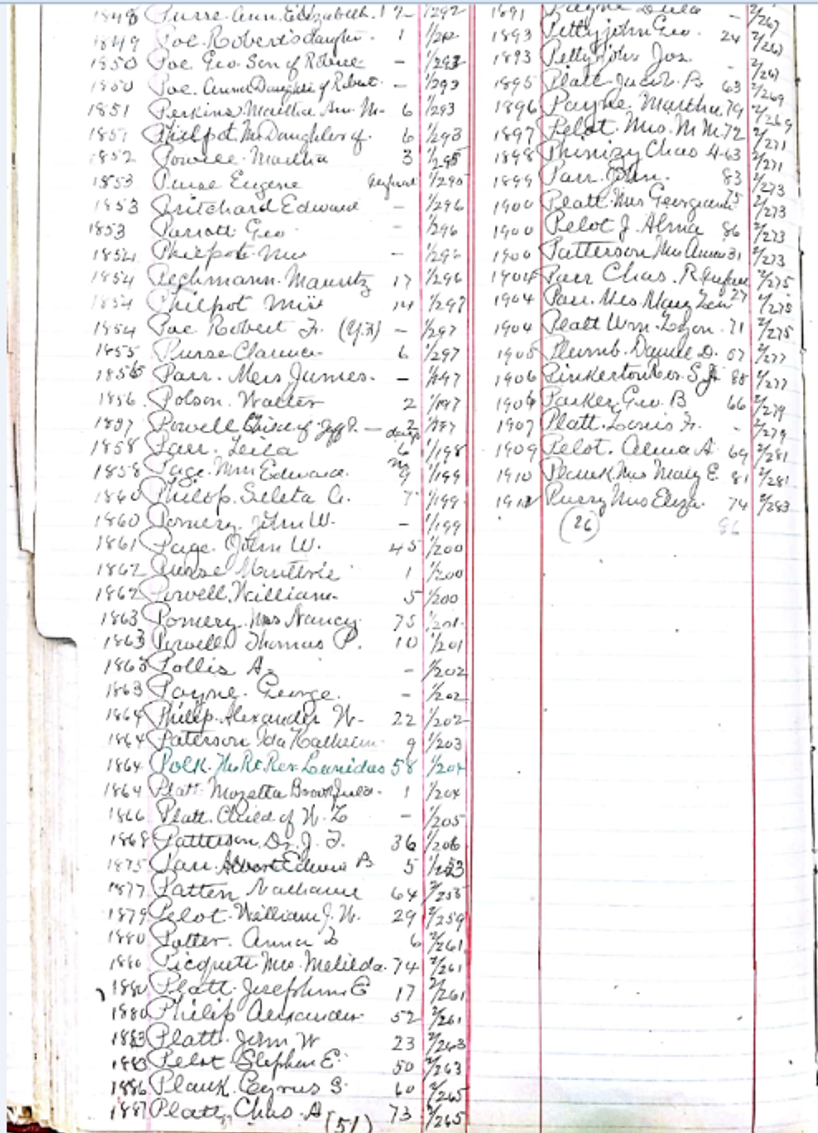 1848 Purse. Ann. Elizabeth. 1/292
1849 Poe. Robert's daughter. 1
1850 Poe Geo. Son of Robert - 1/293
1850 Poe. Daughter of Robert. - 1/293
1851 Perkins Martha Ann M- 6 1/293
1851 Philpot Daughter of. 6 1/293
1852 Powell Martha 3 1/295
1853 Purse Eugene 1/295
1853 Pritchard Edward - 1/296
1853 Parrott Geo - 1/296
1854 Philpot - 1/296
1854 Mauritz 17 1/296
1854 Philpot Miss 14 1/297
1854 Poe Robert F. - 1/297
1855 Purse Clarence 6 1/297
1856 Parr. Mrs James. - 1/197
1856 Polson. Walter 2 1/197
1857 Powell Child of Jeff D. - 1/197
1858 Parr. Leila 6 1/198
1858 Page. Edward. 9 1/199
1860 Philop. Seleta G. 7 1/199
1860 Pomery. John W. - 1/199
1861 Page. John W. 45 1/200
1862 Purse 1 1/200
1862 Powell, William 5 1/200
1863 Pomery. Mrs Nancy. 75 1/201
1863 Powell Thomas P. 10 1/201
1863 Pollis A. - 1/202
1863 Payne. George. - 1/202
1864 Philip. Alexander W- 22 1/202
1864 Paterson Ida 9 1/203
1864 Polk. Rt Rev Leonidas 58 1/204
1864 Platt Mozetta 1 1/204
1866 Platt. Child of W. Z - 1/205
1868 Patterson, Dr. J. T. 36 1/206
1875 Parr. Edwin B 5
1877 Patten Nathaniel 64
1879 Pelot. William J. W. 29 2/259
1880 Potter. Anna 6 2/261
1880 Picquett Mrs. Matilda. 74 2/261
1880 Platt. Josephine E 17 2/261
1880 Philip Alexander 52 2/261
1883 Platt. John W 23 2/263
1883 Pelot Stephen E. 50 2/263
1886 Plank. Cyrus S. 60 2/265
1887 Platt. Chas. A 73 2/265
(51)
1891 Payne - 2/267
1893 Pettyjohn Geo. 24 2/267
1893 Pettyjohn Jos. - 2/267
1895 Platt. Jacob. B 63 2/269
1896 Payne. Martha 79 2/269
1897 Pelot. Mrs. M M. 72 2/271
1898 Phinizy Chas H. 63 2/271
1899 Parr. John. 83 2/273
1900 Platt. Mrs Georgiana 75 2/273
1900 Pelot J. Alma 86 2/273
1900 Patterson Mrs Anna 31 2/273
1904 Parr Chas. R 2/275
1904 Parr. Mrs. Mary 27 2/275
1904 Platt Wm. Logan. 71 2/275
1905 Plumb. Daniel D. 57 2/277
1906 Pinkerton S. J. 88 2/277
1906 Parker Geo. B 66 2/279
1907 Platt. Louis F. - 2/279
1909 Pelot. Alma A 69 2/281
1910 Plank Mrs Mary E. 81 2/281
Purry Mrs Eliza. 74 2/283
(26) 86